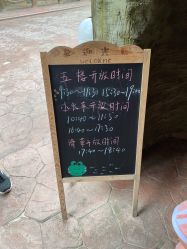 欢迎光临
welcome
五楼开放时间
9:30~11:30 15:30~17:00
开放时间
10:40~11:30
16:40~17:30
开放时间
17:40~18:40